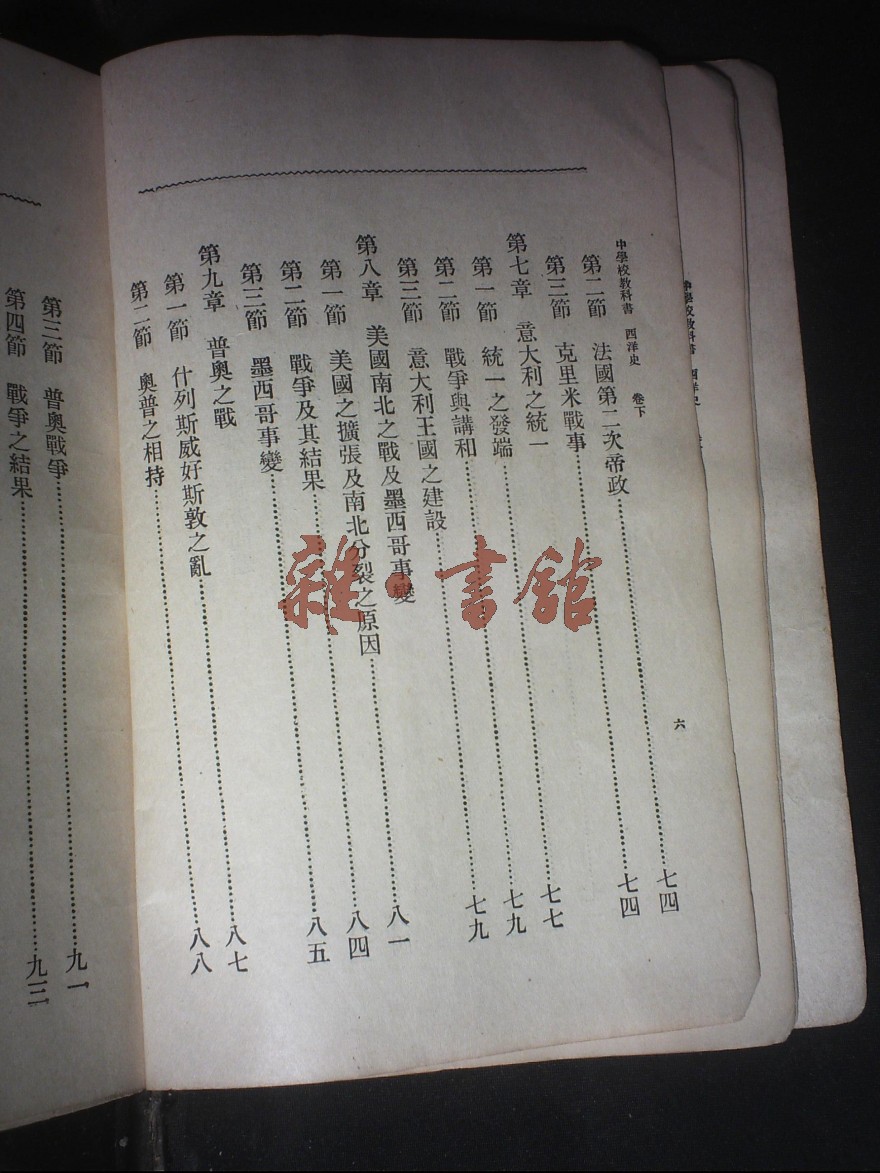 中學校教科書 西洋史
中學校教科書 西洋史 卷下 六
第二節 法國第二次帝政……七四
第三節 克里米戰事……七四
第七章 意大利之統一
第一節 統一之發端……七七
第二節 戰爭與講和……七九
第三節 意大利王國之建設……七九
第八章 美國南北之戰及墨西哥事變
第一節 美國之擴張及南北分裂之原因……八一
第二節 戰爭及其結果……八四
第三節 墨西哥事變……八五
第九章 普奧之戰
第一節 什列斯威好斯敦之亂……八七
第二節 奧普之相持……八八
第三節 普奧戰爭……九一
第四節 戰爭之結果……九三
雜·書館